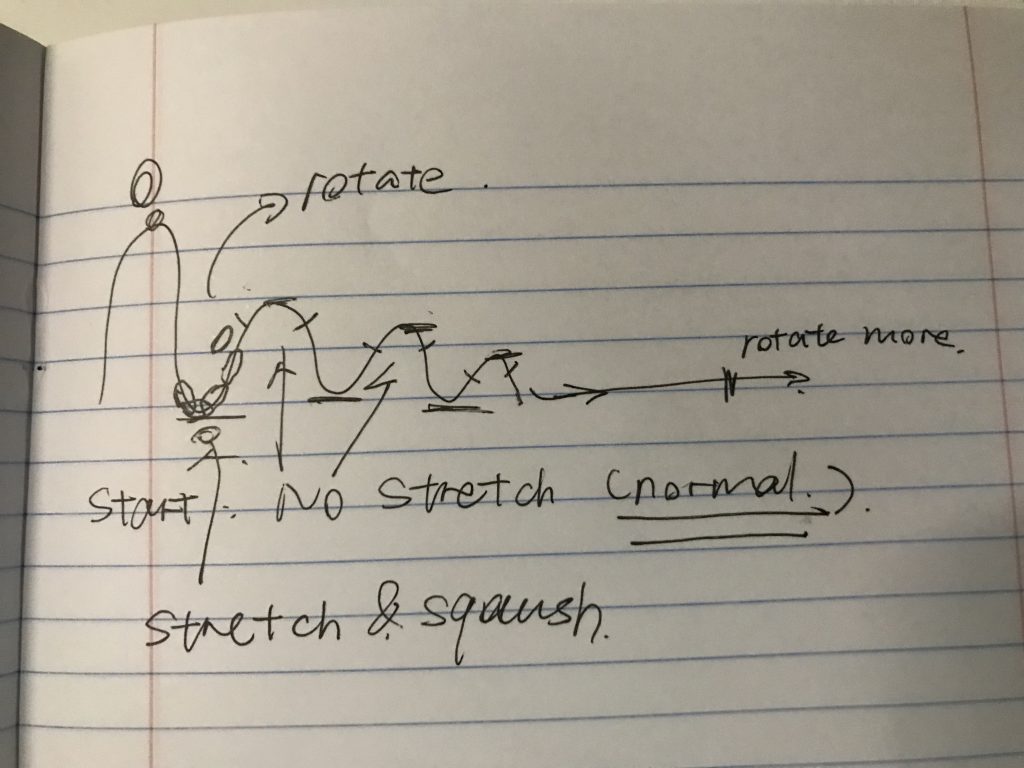 rotate.
rotate more.
Start: No stretch (normal.).
stretch & sqaush.